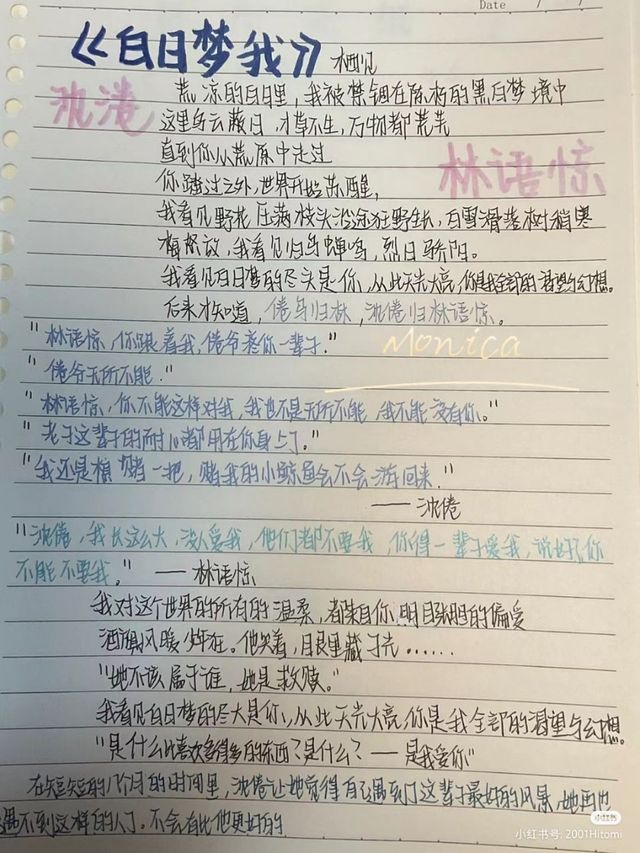 Date / /
《白日梦我》 栖见
沈倦
林语惊
荒凉的白日里，我被禁锢在陈朽的黑白梦境中
这里乌云蔽日，寸草不生，万物都荒芜
直到你从荒原中走过
你踏过之处，世界开始苏醒，
我看见野花压满枝头沿途狂野生长，白雪滑落树梢寒
梅怒放，我看见归鸟蝉鸣，烈日骄阳。
我看见白日梦的尽头是你，从此天光大亮，你是我全部的渴望与幻想。
后来才知道，倦鸟归林，沈倦归林语惊。
"林语惊，你跟着我，倦爷疼你一辈子。"
Monica
"倦爷无所不能。"
"林语惊，你不能这样对我，我也不是无所不能，我不能没有你。"
"老子这辈子的耐心都用在你身上了。"
"我还是想赌一把，赌我的小鲸鱼会不会游回来。"
——沈倦
"沈倦，我长这么大，没人爱我，他们都不要我，你得一辈子爱我，说好了你
不能不要我。" ——林语惊
我对这个世界的所有的温柔，都来自你明目张胆的偏爱
洒脱风暖少年狂。他笑着，目艮里藏了光……
"她不该属于谁，她是救赎。"
我看见白日梦的尽头是你，从此天光大亮，你是我全部的渴望与幻想。
"是什么比喜欢多得多的东西？是什么？——是我爱你"
在短短的几个月的时间里，沈倦让她觉得自己遇到了这辈子最好的风景，她再也
遇不到这样的人了。不会有比他更好的
小红书
小红书号: 2001Hitomi